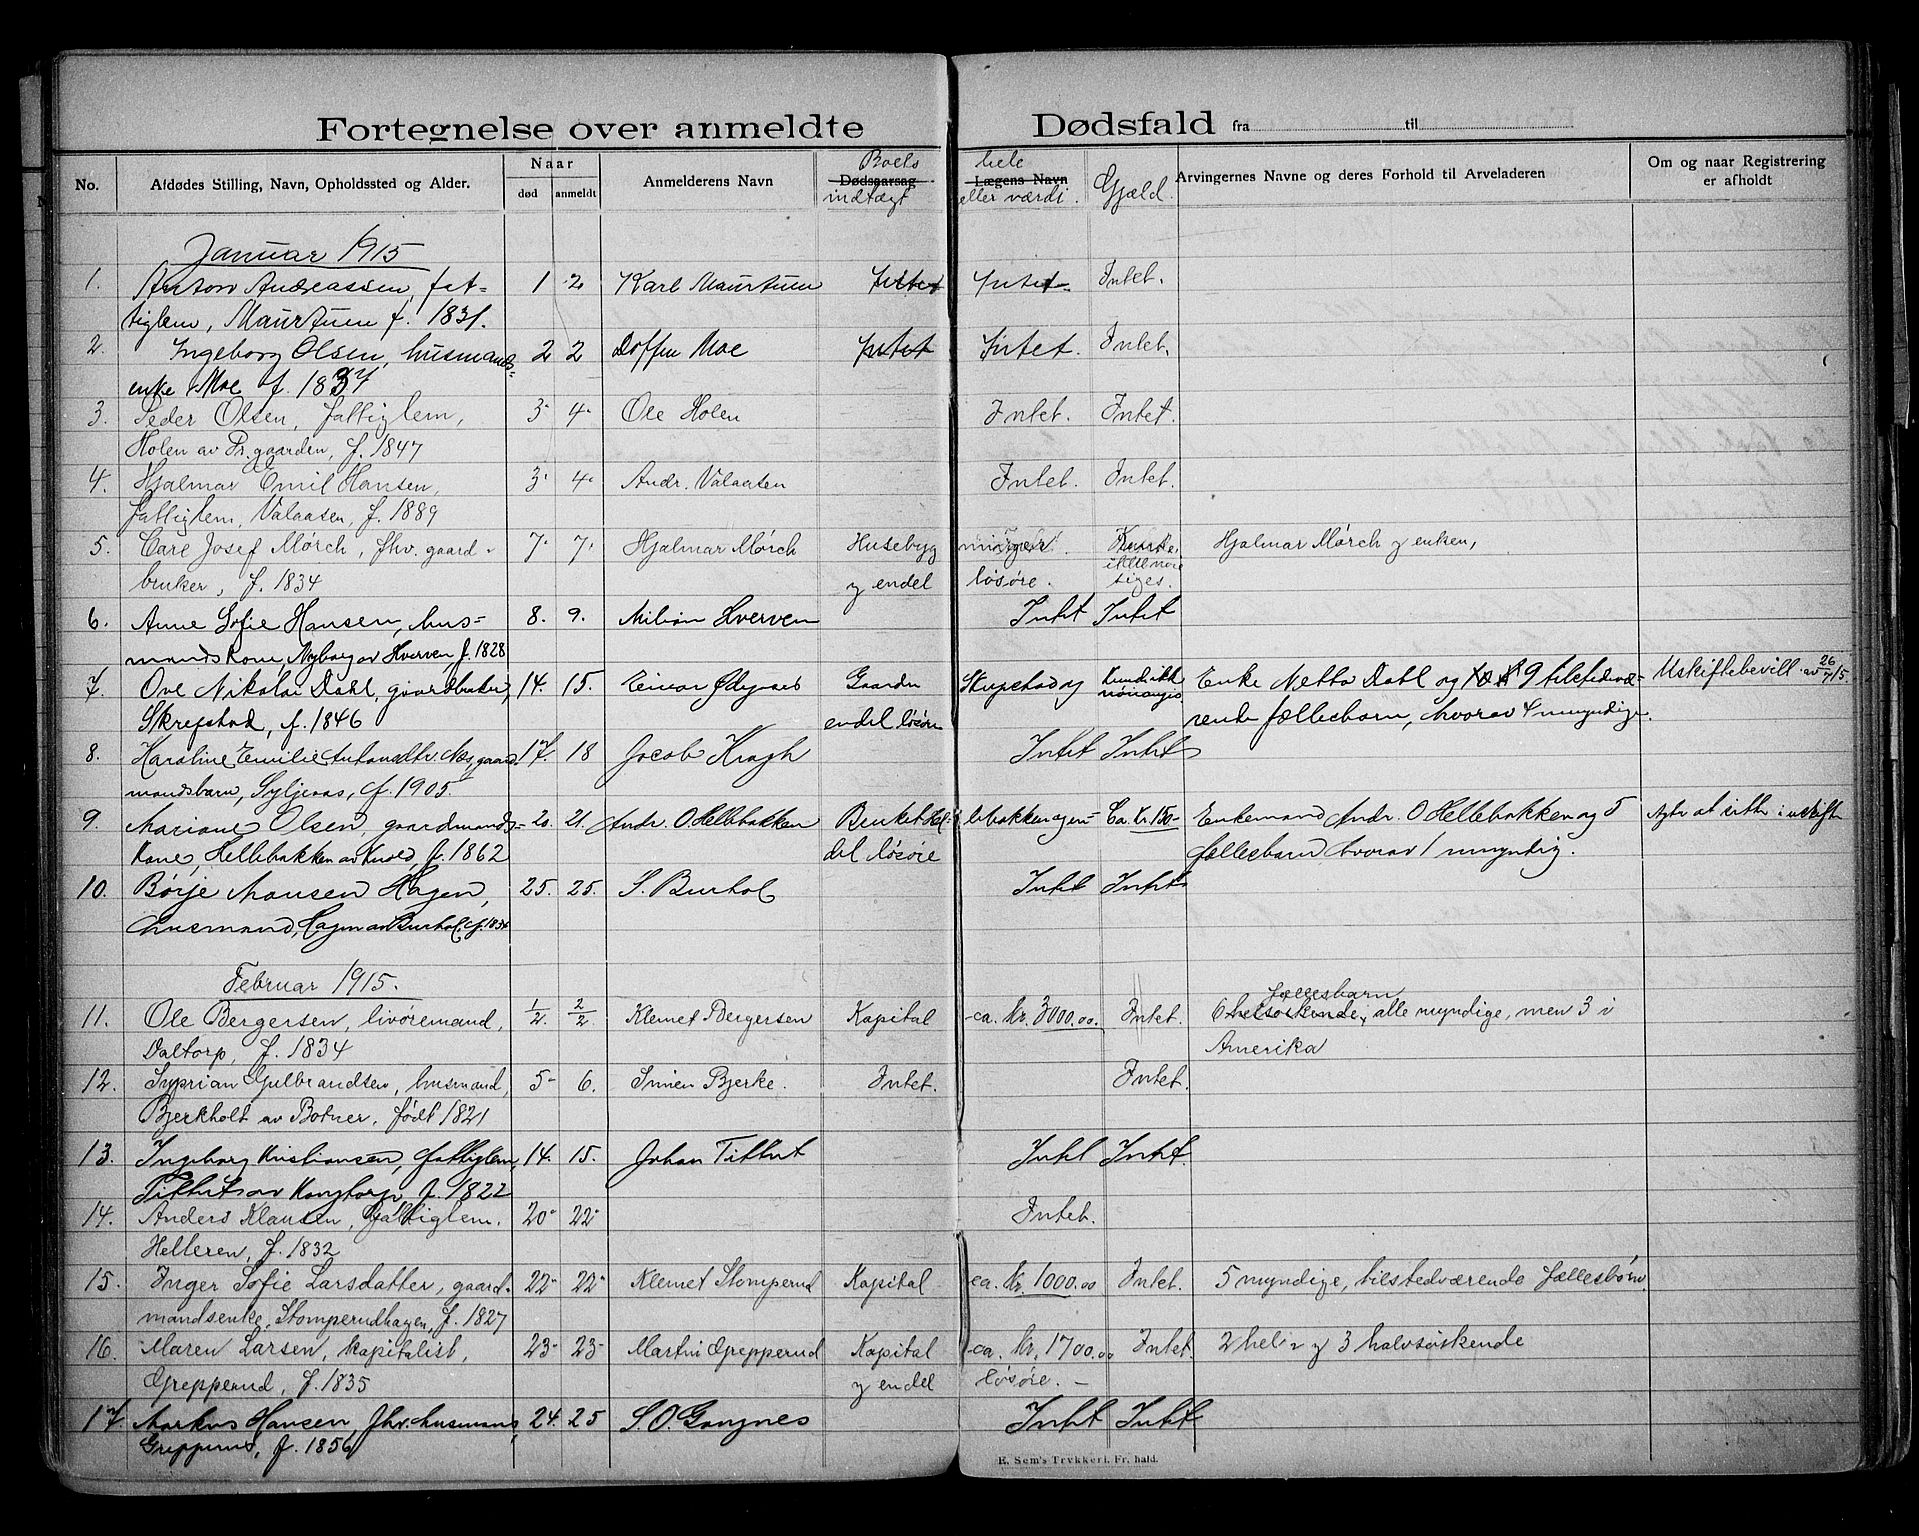 Fortegnelse over anmeldte Dødsfald fra til
No. Afdødes Stilling, Navn, Opholdssted og Alder. Naar død anmeldt Anmelderens Navn Dødsaarsag Boets indtægt Lægens Navn hele eller værdi. Gjæld. Arvingernes Navne og deres Forhold til Arveladeren Om og naar Registrering er afholdt
Januar 1915
1. Anton Andreassen, fat- 1 2 Karl Maurtuen Intet Intet. Intet.
tiglem, Maurtuen f. 1831.
2. Ingeborg Olsen, husmands- 2 2 Doffen Moe Intet Intet. Intet.
enke Moe f. 1837
3. Peder Olsen, fattiglem, 3 4 Ole Holen Intet. Intet.
Holen av Pr.gaarden, f. 1847
4. Hjalmar Emil Hansen, 3 4 Andr. Valaasen Intet. Intet.
fattiglem, Valaasen, f. 1889
5. Carl Josef Mørch, fhv. gaard- 7 7 Hjalmar Mørch Husebyg ninger. Kunde Hjalmar Mørch og enken,
bruker, f. 1834 og endel løsøre. ikke opgives.
6. Anne Sofie Hansen, hus- 8. 9. Milian Hverven Intet Intet
mandskone, Nyborg av Hverven, f. 1828
7. Ove Nikolai Dahl, gaardbruker, 14. 15. Einar Ødegaard Gaarden Skrepstad og Kund. ikke Enke Netta Dahl og 9 tilstedevæ- Uskiftebevill. av 26/7 15.
Skrepstad, f. 1846 endel løsøre rende fællesbarn, hvorav 4 myndige.
8. Karoline Emilie Antonsdtr. Næs, gaard- 17. 18 Jacob Kragh Intet Intet
mandsbarn, Syljeraas, f. 1905.
9. Mariane Olsen, gaardmands- 20. 21. Andr. O Hellebakken Bruket Hel- lebakken og en- Ca. kr. 150- Enkemand Andr. O Hellebakken og 5 Agter at sitte i uskifte
kone, Hellebakken av Knold, f. 1862 del løsøre fællesbarn hvorav 1 myndig.
10. Børje Hansen Hagen, 25. 25. S. Burhol Intet Intet
husmand, Hagen av Burhol. f. 1834
Februar 1915.
11. Ole Bergersen, livøremand, 1/2 2/2 Klemet Bergersen Kapital -ca. kr. 3000.00. Intet. 6 helsøskende, fællesbarn alle myndige, men 3 i
Daltorp, f. 1834 Amerika
12. Syprian Gulbrandsen, husmand, 5 6. Simen Bjerke. Intet. Intet.
Bjerkholt av Botner, født 1821
13. Ingeborg Kristiansen, fattiglem, 14. 15. Johan Tittut Intet Intet.
Tittut av Kongtorp, f. 1822
14. Anders Klausen, fattiglem. 20 22 Intet.
Helleren, f. 1832
15. Inger Sofie Larsdatter, gaard- 22 22 Klemet Stomperud Kapital -ca. kr. 1000.00 Intet. 5 myndige, tilstedværende fællesbørn
mandsenke, Stomperudhagen, f. 1827
16. Maren Larsen, kapitalist, 23 23 Martin Grepperud Kapital -ca. kr. 1700.00 Intet. 2 hel- og 3 halvsøskende
Grepperud, f. 1835 og endel løsøre. -
17. Markus Hansen, fhv. husmand, 24. 25 S. O. Gangnes Intet Intet
Grepperud, f. 1856
E. Sem's Trykkeri, Fr. hald.